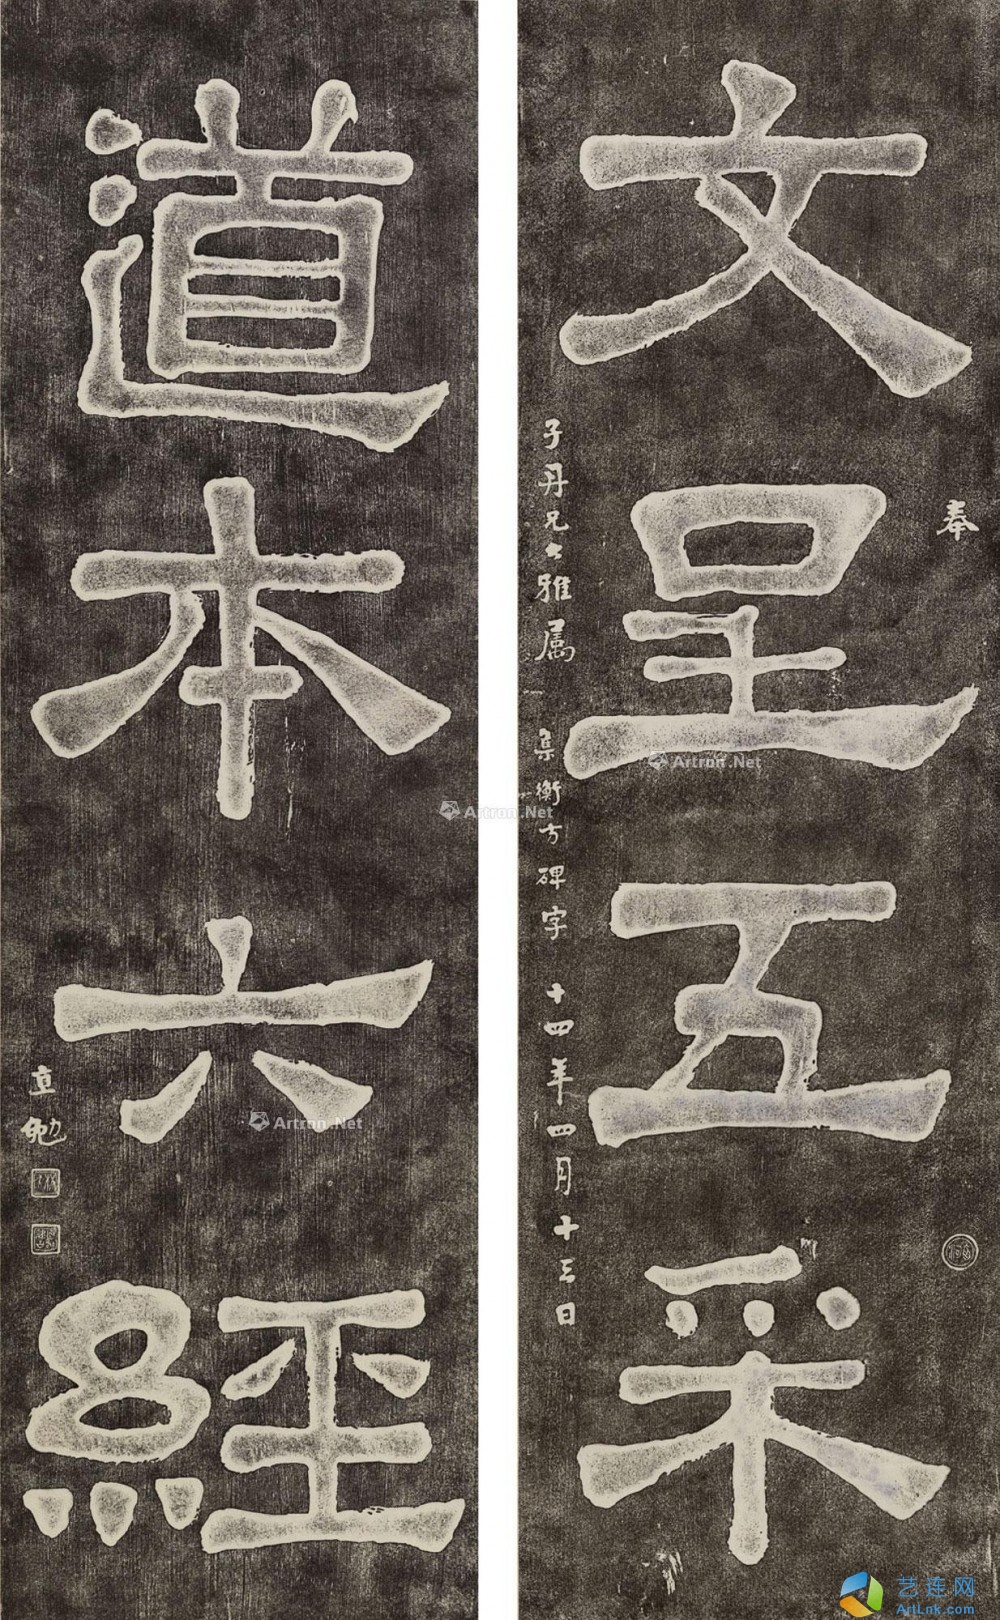 文呈五采
奉
子丹兄大雅属
集衡方碑字 十四年四月十三日
道本六經
直勉
Artron.Net
Artron.Net
Artron.Net
艺连网
ArtLnk.com